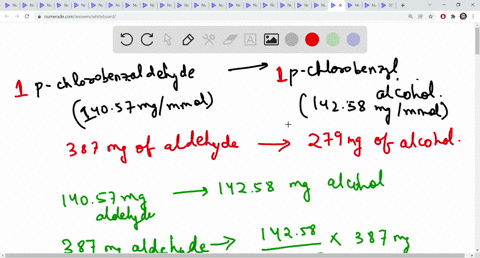 numerade.com/answers/whiteboard/
1 p-chlorobenzaldehyde → 1 p-chlorobenzyl alcohol.
(140.57 mg/mmol) (142.58 mg/mmol)
387 mg of aldehyde → 279 mg of alcohol.
140.57 mg aldehyde → 142.58 mg alcohol
387 mg aldehyde → 142.58 × 387 mg